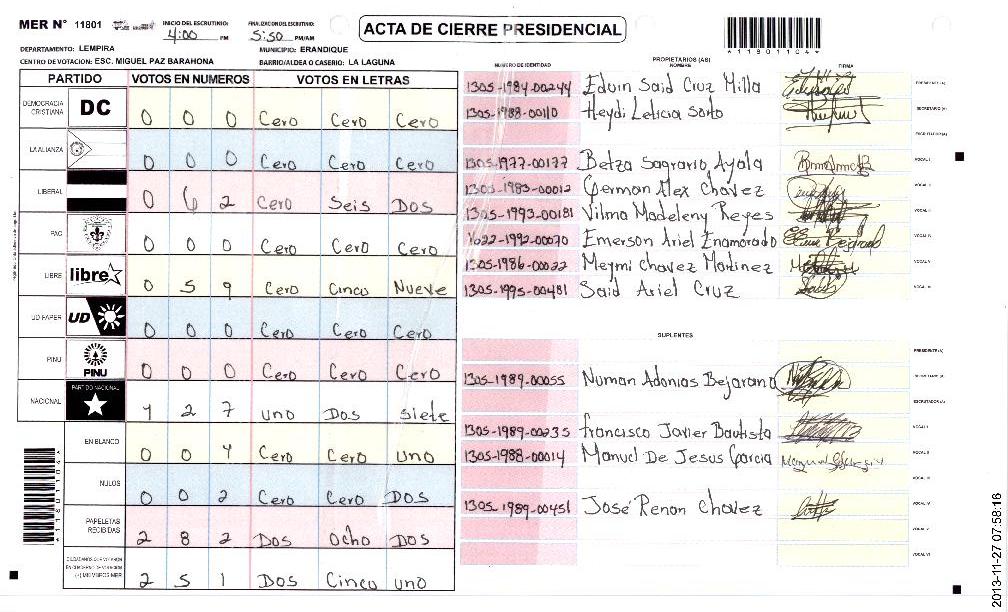 MER N° 11801
INICIO DEL ESCRUTINIO: 4:00 PM
FINALIZACION DEL ESCRUTINIO: 5:50 PM/AM
ACTA DE CIERRE PRESIDENCIAL
*11801104*
DEPARTAMENTO: LEMPIRA
MUNICIPIO: ERANDIQUE
CENTRO DE VOTACION: ESC. MIGUEL PAZ BARAHONA
BARRIO/ALDEA O CASERIO: LA LAGUNA
PARTIDO VOTOS EN NUMEROS VOTOS EN LETRAS
DEMOCRACIA CRISTIANA DC 0 0 0 Cero Cero Cero
LA ALIANZA 0 0 0 Cero Cero Cero
LIBERAL 0 6 2 Cero Seis Dos
PAC 0 0 0 Cero Cero Cero
LIBRE libre 0 5 9 Cero Cinco Nueve
UD FAPER UD 0 0 0 Cero Cero Cero
PINU PINU 0 0 0 Cero Cero Cero
NACIONAL PARTIDO NACIONAL 1 2 7 uno Dos siete
EN BLANCO 0 0 1 Cero Cero uno
NULOS 0 0 2 Cero Cero Dos
PAPELETAS RECIBIDAS 2 8 2 Dos Ocho Dos
CIUDADANOS QUE VOTARON EN CUADERNO DE VOTACION (+) MIEMBROS MER 2 5 1 Dos Cinco uno
PROPIETARIOS (AS)
NUMERO DE IDENTIDAD NOMBRE FIRMA
1305-1984-00244 Edvin Said Cruz Milla PRESIDENTE (A)
1305-1988-00110 Heydi Leticia Sorto SECRETARIO (A)
ESCRUTADOR (A)
1305-1977-00177 Betza Sagrario Ayala VOCAL I
1305-1983-00012 German Alex Chavez VOCAL II
1305-1993-00181 Vilma Madeleny Reyes VOCAL III
1622-1992-00070 Emerson Ariel Enamorado VOCAL IV
1305-1986-00022 Meymi Chavez Martinez VOCAL V
1305-1995-00481 Said Ariel Cruz VOCAL VI
SUPLENTES
PRESIDENTE (A)
1305-1989-00055 Numan Adonias Bejarano SECRETARIO (A)
ESCRUTADOR (A)
1305-1989-00235 Francisco Javier Bautista VOCAL I
1305-1988-00014 Manuel De Jesus Garcia VOCAL II
VOCAL III
1305-1989-00451 José Renan Chavez VOCAL IV
VOCAL V
VOCAL VI
2013-11-27 07:58:16